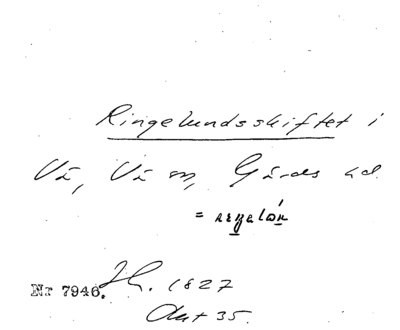 Ringelundsskiftet i
Vä, Vä sn, Gärds hd.
Nr 7946.
1827
Akt 35.